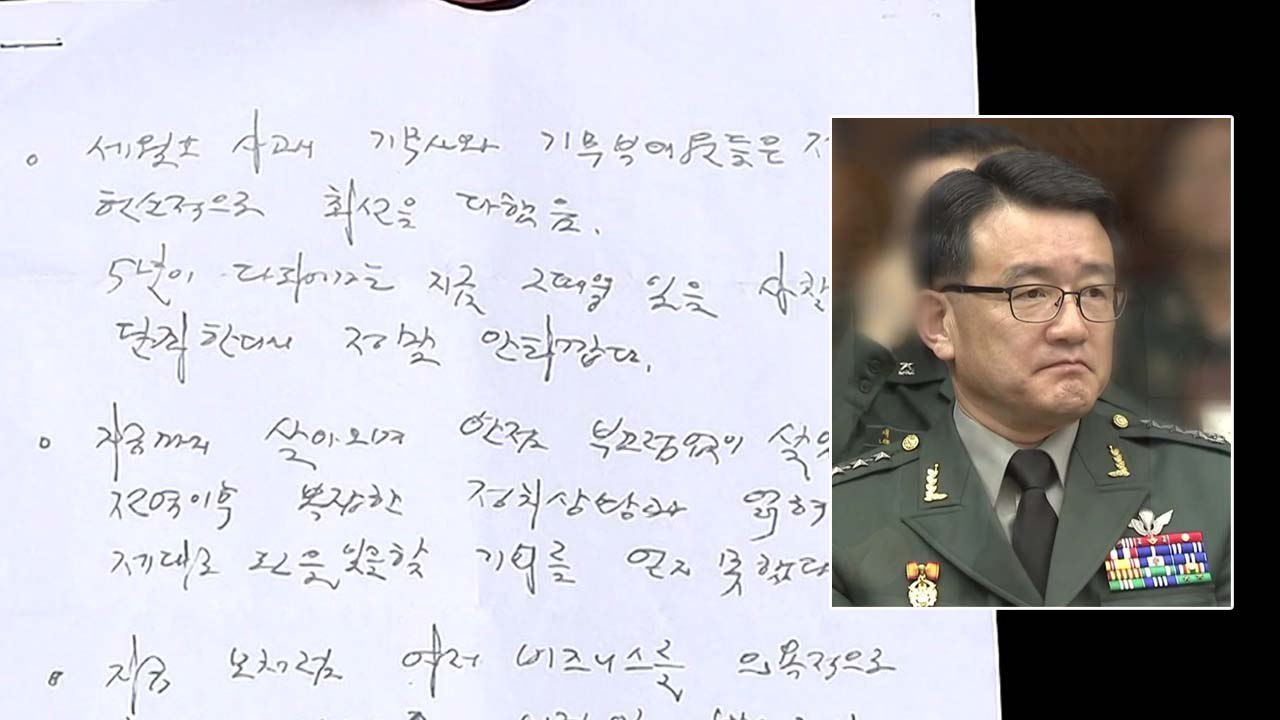 ◦ 세월호 사고시 기무사와 기무부대원들은
헌신적으로 최선을 다했음.
5년이 지금 그때의 일을 사찰
단죄한다니 정말 안타깝다.
◦ 지금까지 살아오며 한점 부끄럼없이 살았
전역이후 복잡한 정치상황과 얽혀
제대로 된 일을 할 기회를 얻지 못했다
◦ 지금 모처럼 여러 비즈니스를 의욕적으로